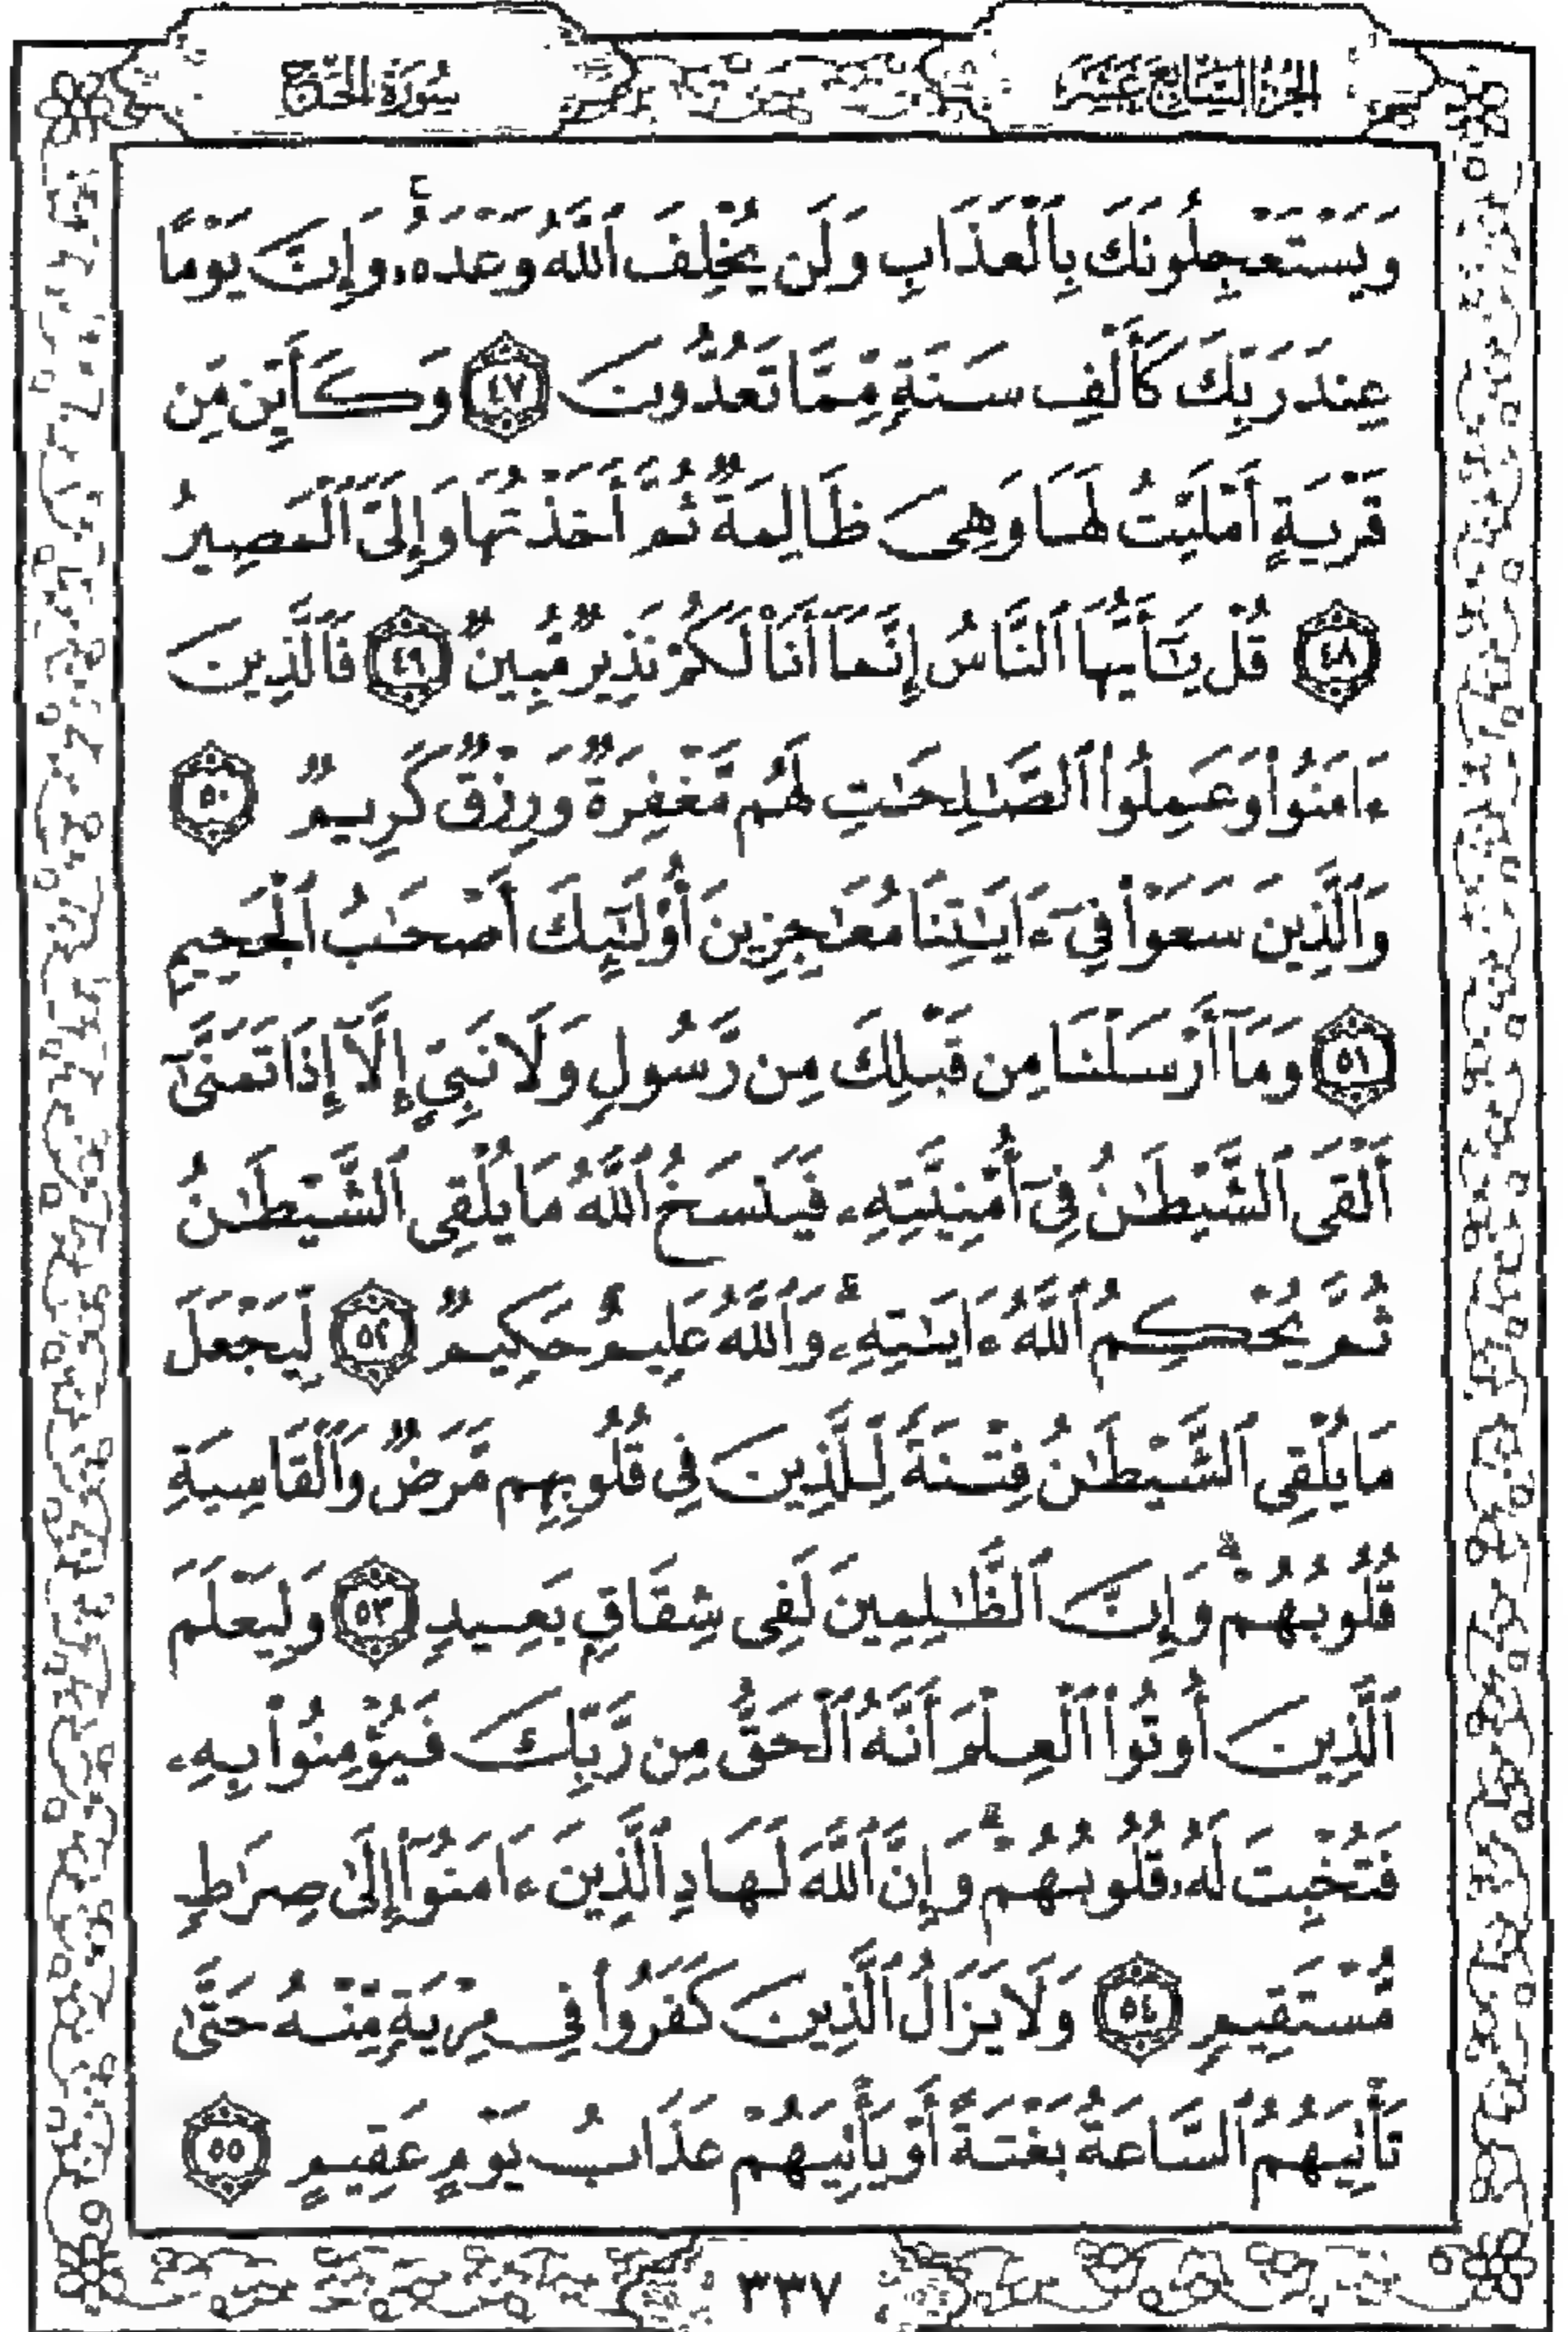 الجزء السابع عشر
سورة الحج
وَيَسْتَعْجِلُونَكَ بِٱلْعَذَابِ وَلَن يُخْلِفَ ٱللَّهُ وَعْدَهُۥ ۚ وَإِنَّ يَوْمًا
عِندَ رَبِّكَ كَأَلْفِ سَنَةٍ مِّمَّا تَعُدُّونَ ٤٧ وَكَأَيِّن مِّن
قَرْيَةٍ أَمْلَيْتُ لَهَا وَهِىَ ظَالِمَةٌ ثُمَّ أَخَذْتُهَا وَإِلَىَّ ٱلْمَصِيرُ
٤٨ قُلْ يَـٰٓأَيُّهَا ٱلنَّاسُ إِنَّمَآ أَنَا۠ لَكُمْ نَذِيرٌ مُّبِينٌ ٤٩ فَٱلَّذِينَ
ءَامَنُوا۟ وَعَمِلُوا۟ ٱلصَّـٰلِحَـٰتِ لَهُم مَّغْفِرَةٌ وَرِزْقٌ كَرِيمٌ ٥٠
وَٱلَّذِينَ سَعَوْا۟ فِىٓ ءَايَـٰتِنَا مُعَـٰجِزِينَ أُو۟لَـٰٓئِكَ أَصْحَـٰبُ ٱلْجَحِيمِ
٥١ وَمَآ أَرْسَلْنَا مِن قَبْلِكَ مِن رَّسُولٍ وَلَا نَبِىٍّ إِلَّآ إِذَا تَمَنَّىٰٓ
أَلْقَى ٱلشَّيْطَـٰنُ فِىٓ أُمْنِيَّتِهِۦ فَيَنسَخُ ٱللَّهُ مَا يُلْقِى ٱلشَّيْطَـٰنُ
ثُمَّ يُحْكِمُ ٱللَّهُ ءَايَـٰتِهِۦ ۗ وَٱللَّهُ عَلِيمٌ حَكِيمٌ ٥٢ لِّيَجْعَلَ
مَا يُلْقِى ٱلشَّيْطَـٰنُ فِتْنَةً لِّلَّذِينَ فِى قُلُوبِهِم مَّرَضٌ وَٱلْقَاسِيَةِ
قُلُوبُهُمْ ۗ وَإِنَّ ٱلظَّـٰلِمِينَ لَفِى شِقَاقٍۭ بَعِيدٍ ٥٣ وَلِيَعْلَمَ
ٱلَّذِينَ أُوتُوا۟ ٱلْعِلْمَ أَنَّهُ ٱلْحَقُّ مِن رَّبِّكَ فَيُؤْمِنُوا۟ بِهِۦ
فَتُخْبِتَ لَهُۥ قُلُوبُهُمْ ۗ وَإِنَّ ٱللَّهَ لَهَادِ ٱلَّذِينَ ءَامَنُوٓا۟ إِلَىٰ صِرَٰطٍ
مُّسْتَقِيمٍ ٥٤ وَلَا يَزَالُ ٱلَّذِينَ كَفَرُوا۟ فِى مِرْيَةٍ مِّنْهُ حَتَّىٰ
تَأْتِيَهُمُ ٱلسَّاعَةُ بَغْتَةً أَوْ يَأْتِيَهُمْ عَذَابُ يَوْمٍ عَقِيمٍ ٥٥
٣٣٧